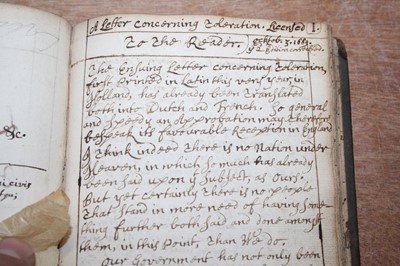 A Letter Concerning Toleration. Licensed I.
To the Reader.
Octob. 3. 1689.
The Ensuing Letter concerning Toleration,
first Printed in Latin this very year, in
Holland, has already been Translated
both into Dutch and French. So general
and speedy an Approbation may therefore
bespeak its favourable Reception in England
I Think indeed there is no Nation under
Heaven, in which so much has already
been said upon yt Subject, as Ours.
But yet certainly There is no people
That stand in more need of having some-
thing further both said and done amongst
them, in this Point, Than We do.
Our Government has not only been
&c.